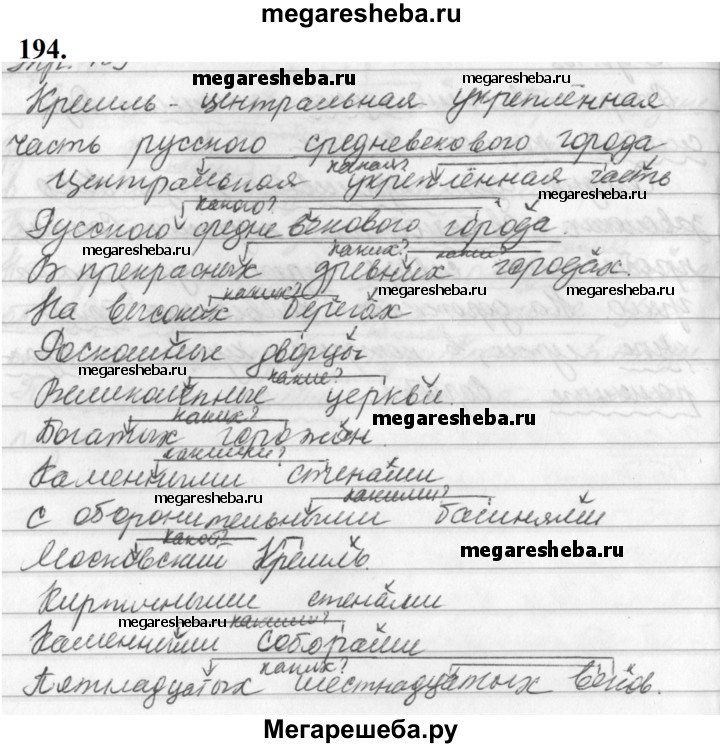 megaresheba.ru
194.
megaresheba.ru megaresheba.ru
Кремль - центральная укреплённая
часть русского средневекового города
какая?
Центральная укреплённая часть
какого? megaresheba.ru
Русского средневекового города.
megaresheba.ru каких? каких?
В прекрасных древних городах.
megaresheba.ru каких? megaresheba.ru
На высоких берегах
Роскошные дворцы
megaresheba.ru какие?
Великолепные церкви.
каких? megaresheba.ru
Богатых горожан.
какими?
Каменными стенами
megaresheba.ru какими?
с оборонительными башнями
какой?
Московский Кремль. megaresheba.ru
Кирпичными стенами
megaresheba.ru какими?
Каменными соборами
каких?
Пятнадцатых шестнадцатых веков.
Мегарешеба.ру